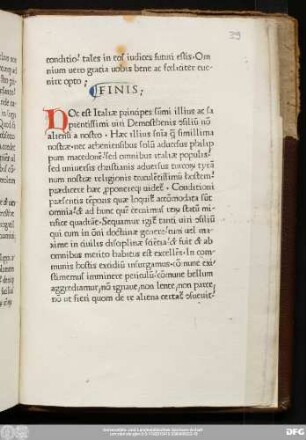 39
conditioĩ tales in eos iudices futuri estis. Om
nium uero gratia uobis bene ac foeliciter eue
nire opto;
FINIS;
HOc est Italiæ principes sũmi illius ac sa
pientissimi uiri Demosthenis cõsiliũ nõ
alienũ a nostro. Hæc illius sñia q̃ simillima
nostræ. nec atheniensibus solũ aduersus philip
pum macedonẽ. sed omnibus italiæ populis
sed uniuersis christianis aduersus turcorꝝ tyrã
num nostræ religionis truculẽtissimũ hostem
prædicere hæc, proponereq̃ uidet. Conditioni
præsentis tẽporis quæ loquit̃ accõmodata sũt
omnia. & ad hunc quẽ cernimus
Sequamur igit̃ tanti uiri cõsiliũ
qui cum in oñi doctrinæ genere tum uel ma
xime in ciuilis disciplinæ sciẽtia & fuit & ab
omnibus merito habitus est excellẽs. In com
munis hostis exitiũ insurgamus. cõmune exi
stimemus imminere periculũ. cõmune bellum
aggrediamur, nõ ignaue, non lente, non parce,
nõ ut fieri quom de re aliena certat̃ consueuit.
DFG